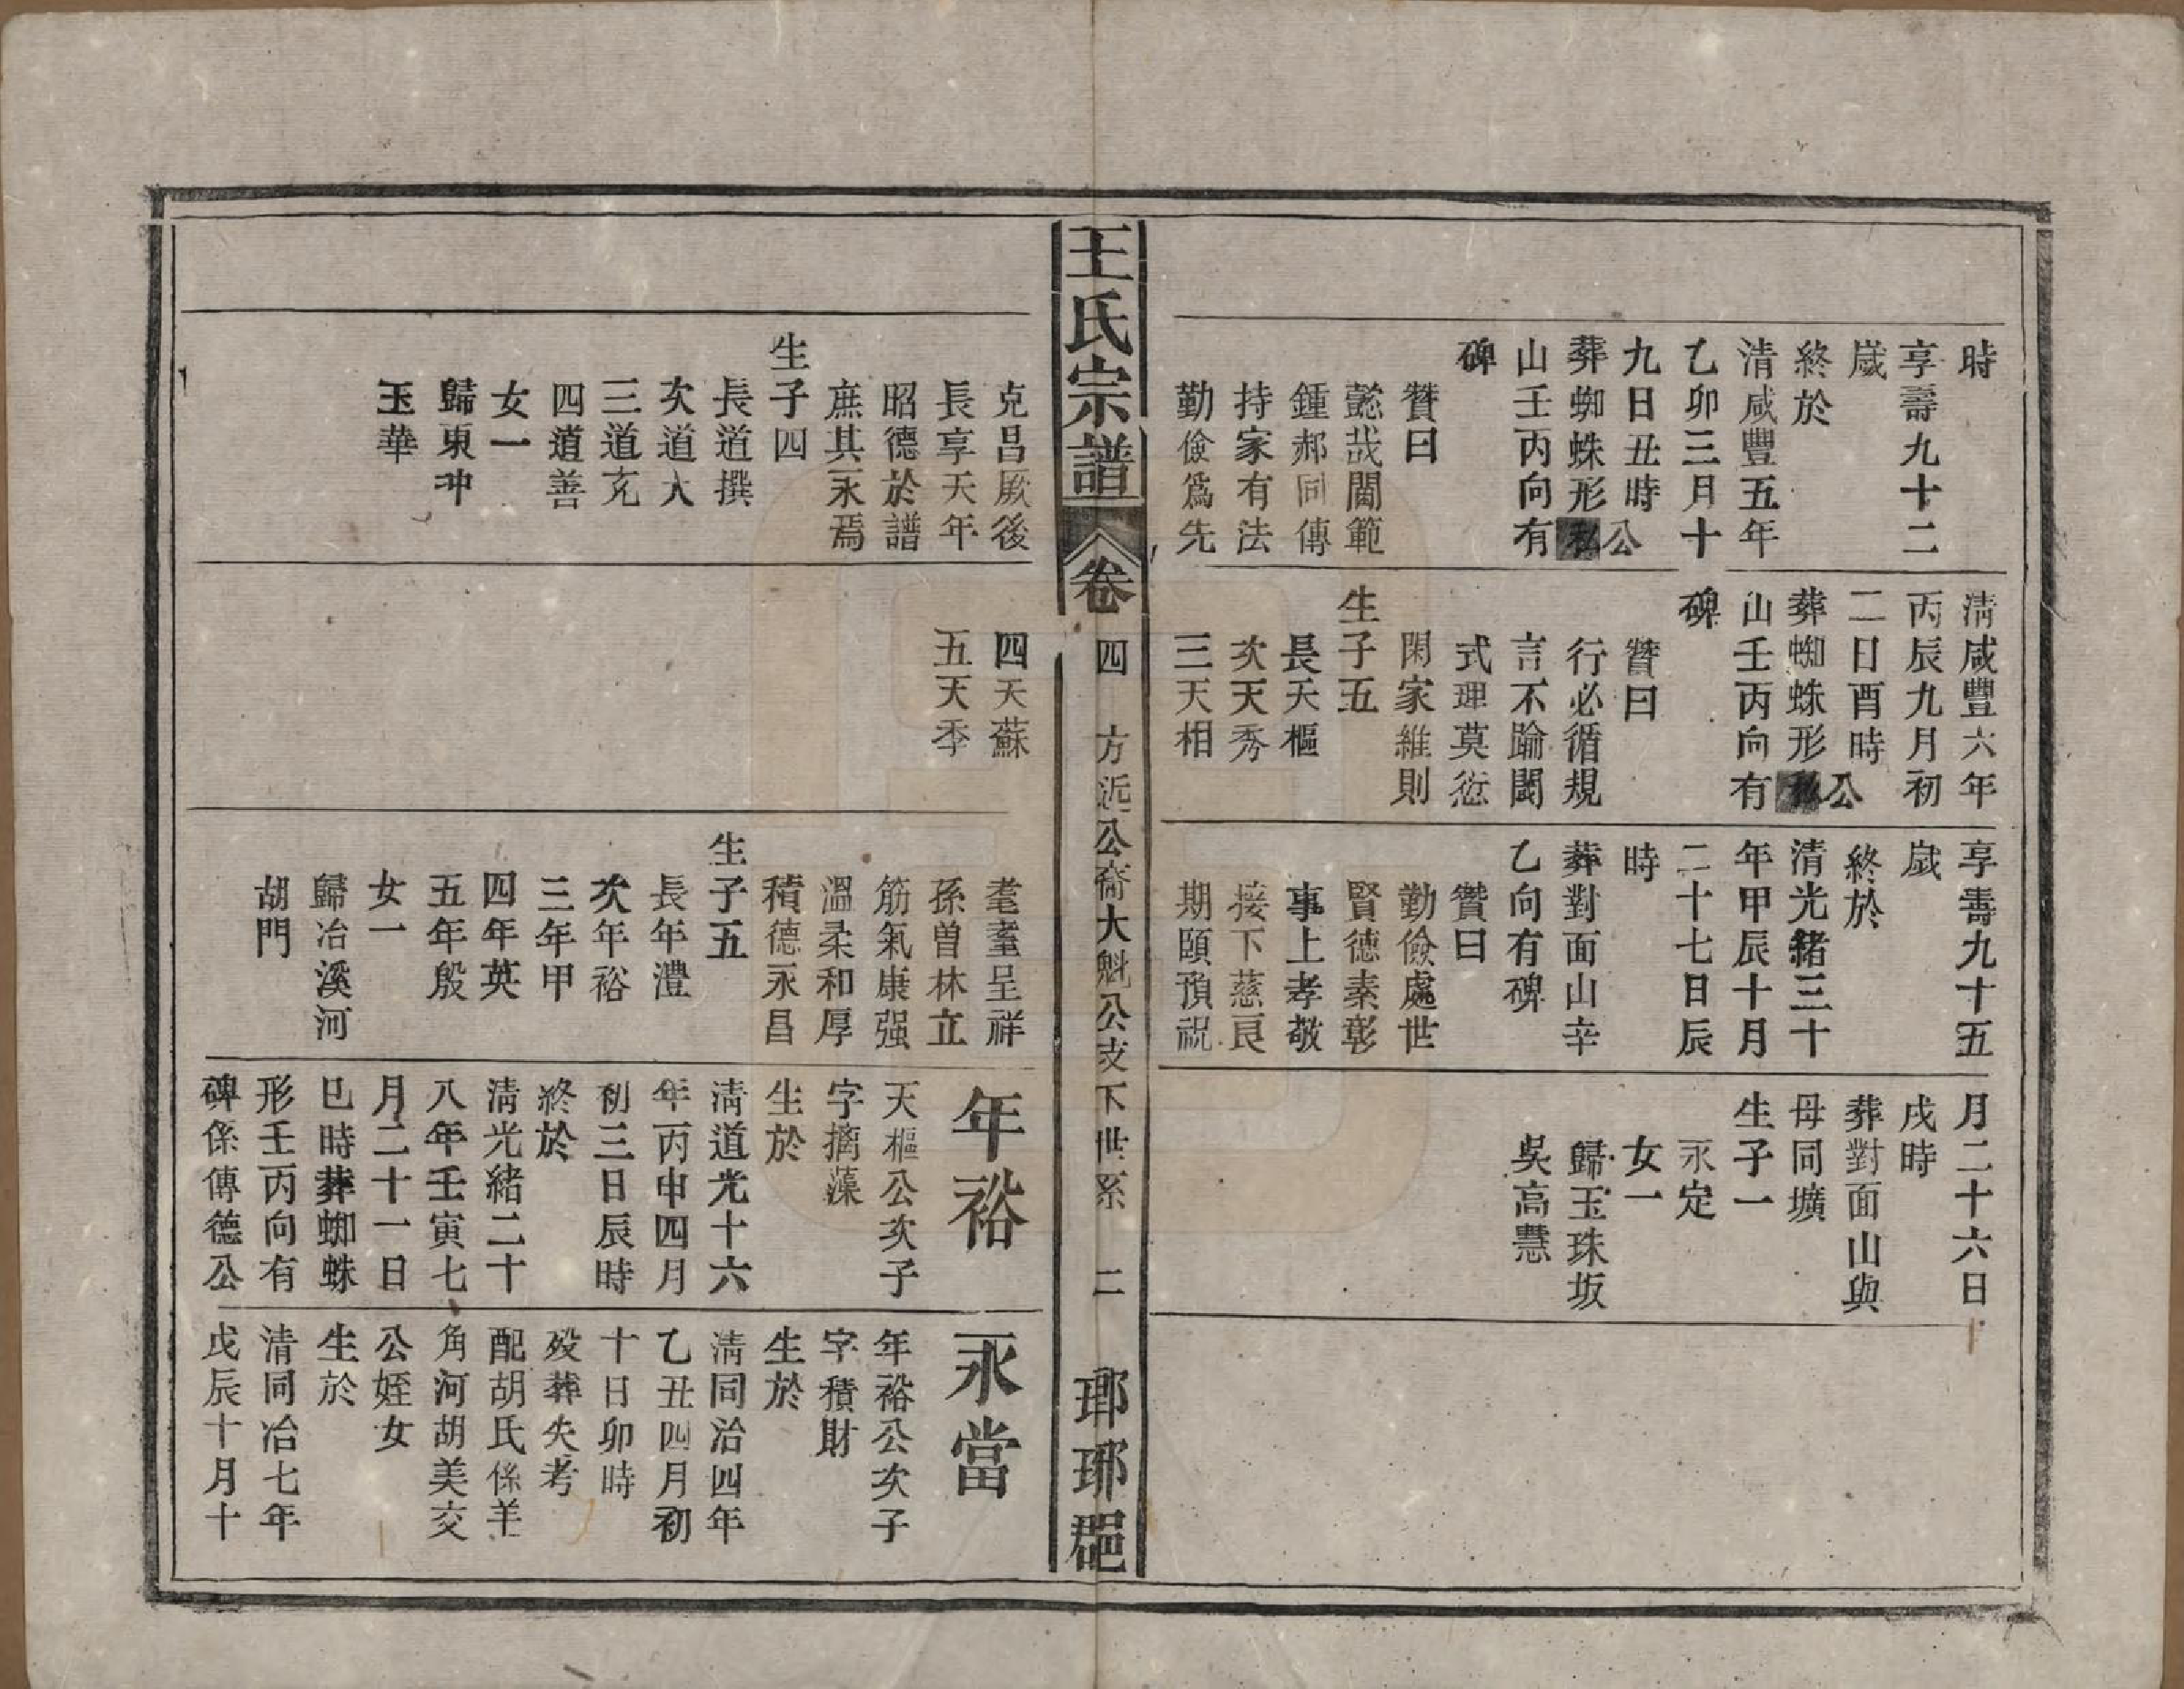 時
享壽九十二
歲
終於
清咸豐五年
乙卯三月十
九日丑時公
葬蜘蛛形私
山壬丙向有
碑
贊曰
懿哉閫範
鍾郝同傳
持家有法
勤儉爲先
清咸豐六年
丙辰九月初
二日酉時公
葬蜘蛛形私
山壬丙向有
碑
贊曰
行必循規
言不踰閾
式理莫愆
閑家維則
生子五
長天樞
次天秀
三天相
享壽九十五
歲
終於
清光緒三十
年甲辰十月
二十七日辰
時
葬對面山辛
乙向有碑
贊曰
勤儉處世
賢德素彰
事上孝敬
接下慈良
期頤預祝
月二十六日
戌時
葬對面山與
母同壙
生子一
永定
女一
歸玉珠坂
吳高慧
王氏宗譜
卷四
方近公裔大魁公支下世系
二
瑯琊郡
克昌厥後
長享天年
昭德於譜
庶其永焉
生子四
長道撰
次道大
三道充
四道善
女一
歸東冲
玉華
四天蘇
五天季
耄耋呈祥
孫曾林立
筋氣康强
溫柔和厚
積德永昌
生子五
長年澧
次年裕
三年甲
四年英
五年殷
女一
歸冶溪河
胡門
年裕
天樞公次子
字摛藻
生於
清道光十六
年丙申四月
初三日辰時
終於
清光緒二十
八年壬寅七
月二十一日
巳時葬蜘蛛
形壬丙向有
碑係傳德公
永當
年裕公次子
字積財
生於
清同治四年
乙丑四月初
十日卯時
歿葬失考
配胡氏係羊
角河胡美交
公姪女
生於
清同治七年
戊辰十月十